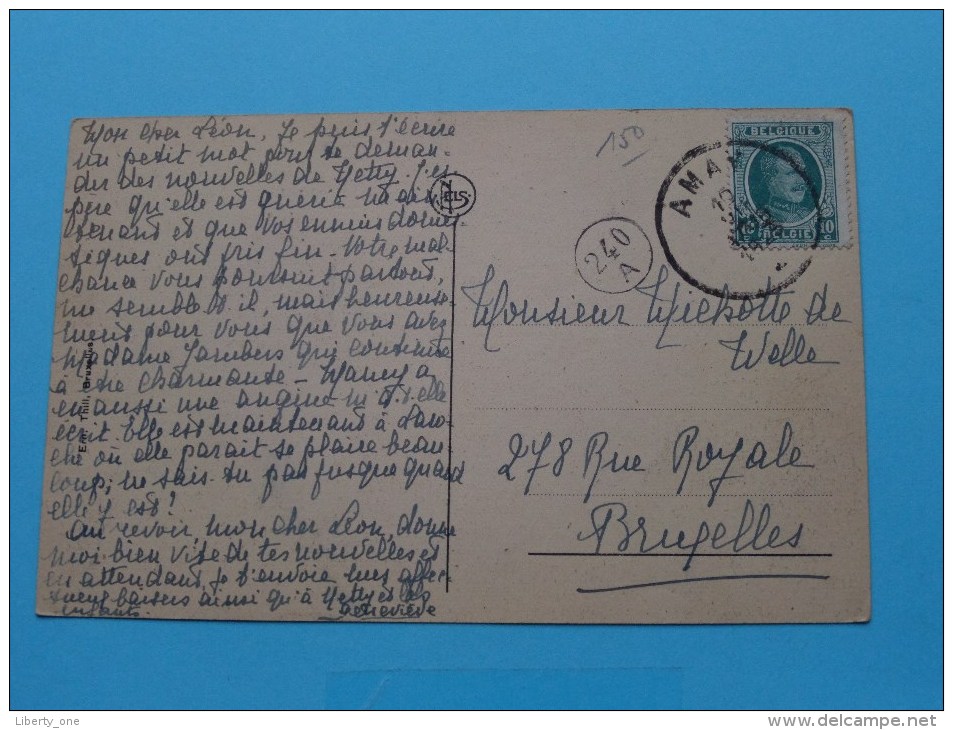 Mon cher Léon, Je puis t'écrire
un petit mot pour te deman-
der des nouvelles de Netty. J'es-
père qu'elle est guérie main-
tenant et que vos ennuis domes-
tiques ont pris fin. Votre mal-
chance vous poursuit partout,
me semble t il, mais heureuse-
ment pour vous que vous avez
Madame Jambers qui continue
à être charmante - Nancy a
eu aussi une angine m'a t elle
écrit. Elle est maintenant à
où elle parait se plaire beau-
coup; ne sais-tu pas jusque quand
elle y est?
Au revoir, mon cher Léon, donne
moi bien vite de tes nouvelles et
en attendant, je t'envoie mes affec-
tueux baisers ainsi qu'à Netty et les
enfants. Geneviève
Thill, Bruxelles
ELS
150
240
A
AMAY
BELGIQUE
10 C
10 C
BELGIE
Monsieur Michotte de
Welle
278 Rue Royale
Bruxelles
Liberty_one
http://www.delcampe.net